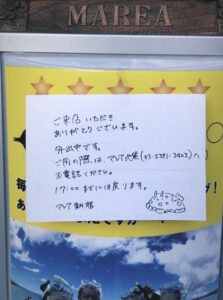 MAREA
ご来店いただき
ありがとうございます。
外出中です。
ご用の際は、マレア
お電話ください。
17:00 までには戻ります。
マレア新宿
毎
あ